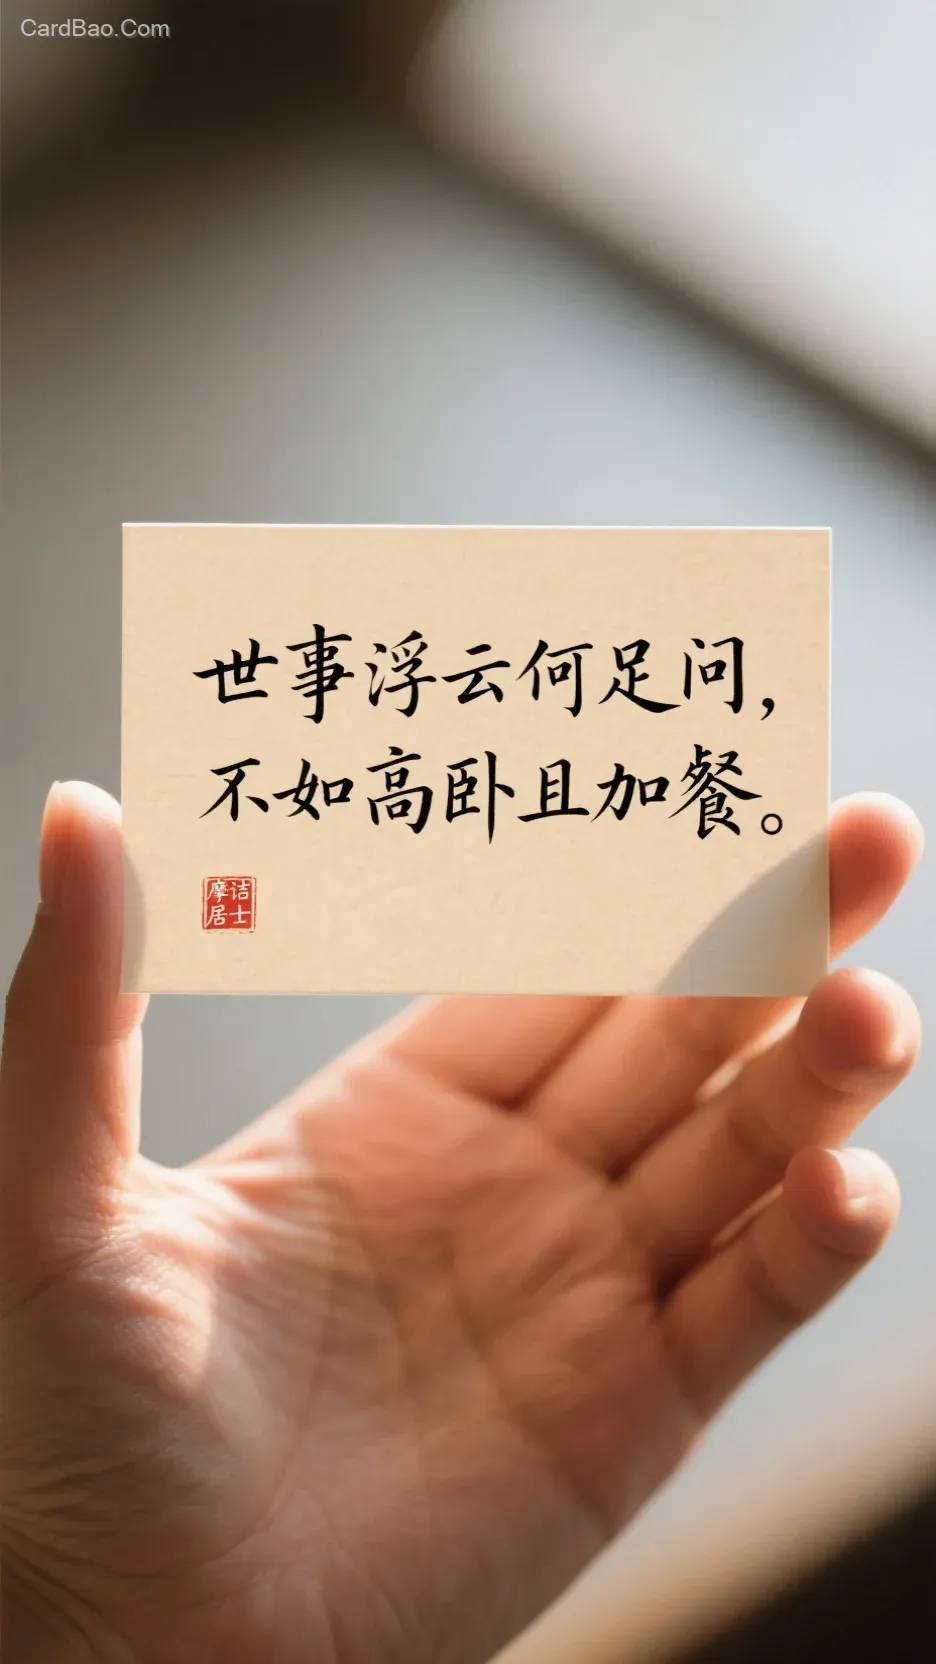 CardBao.Com
世事浮云何足问，
不如高卧且加餐。
摩诘
居士